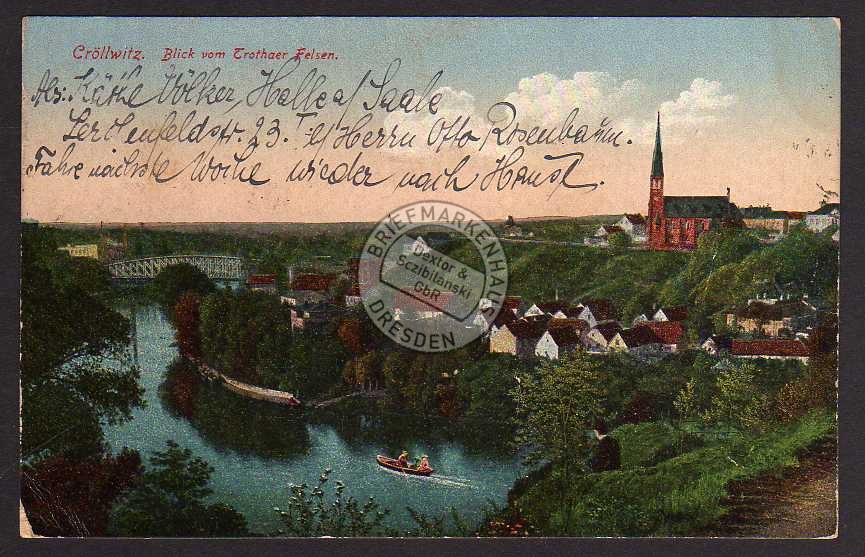 Cröllwitz. Blick vom Trothaer Felsen.
Abs: Käthe Völker, Halle a/Saale
Lerchenfeldstr. 23. I e/Herrn Otto Rosenbaum.
Fahre nächste Woche wieder nach Hause.
BRIEFMARKENHAUS
Dextor &
Sczibilanski
GbR
DRESDEN